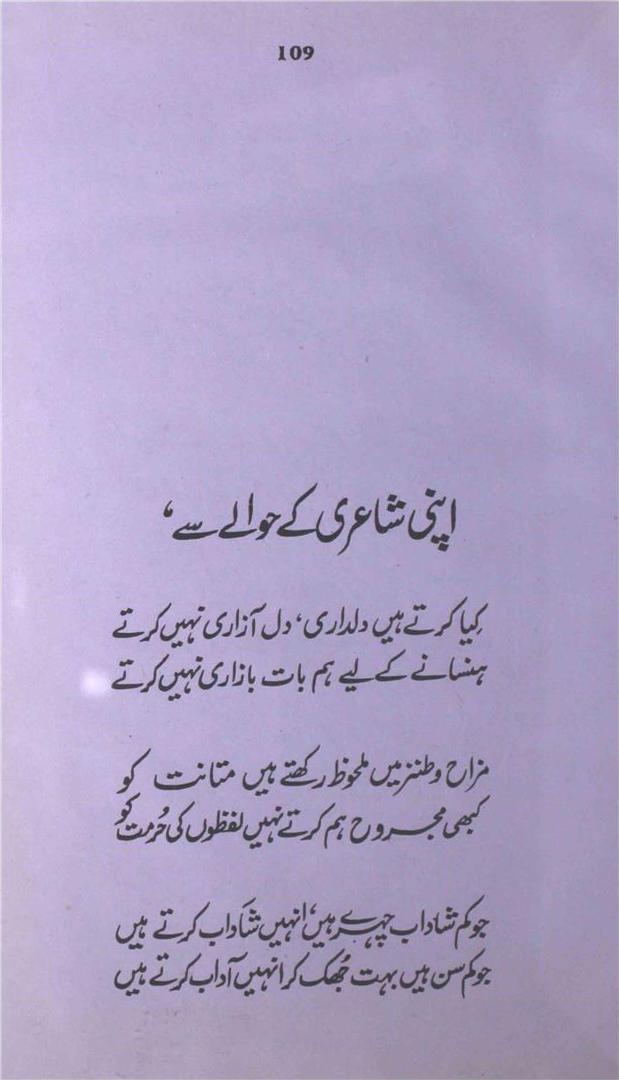 109
اپنی شاعری کے حوالے سے،
کِیا کرتے ہیں دلداری، دل آزاری نہیں کرتے
ہنسانے کے لیے ہم بات بازاری نہیں کرتے
مزاح و طنز میں ملحوظ رکھتے ہیں متانت کو
کبھی مجروح ہم کرتے نہیں لفظوں کی حُرمت کو
جو کم شاداب چہرے ہیں، انہیں شاداب کرتے ہیں
جو کم سن ہیں بہت جُھک کر انہیں آداب کرتے ہیں